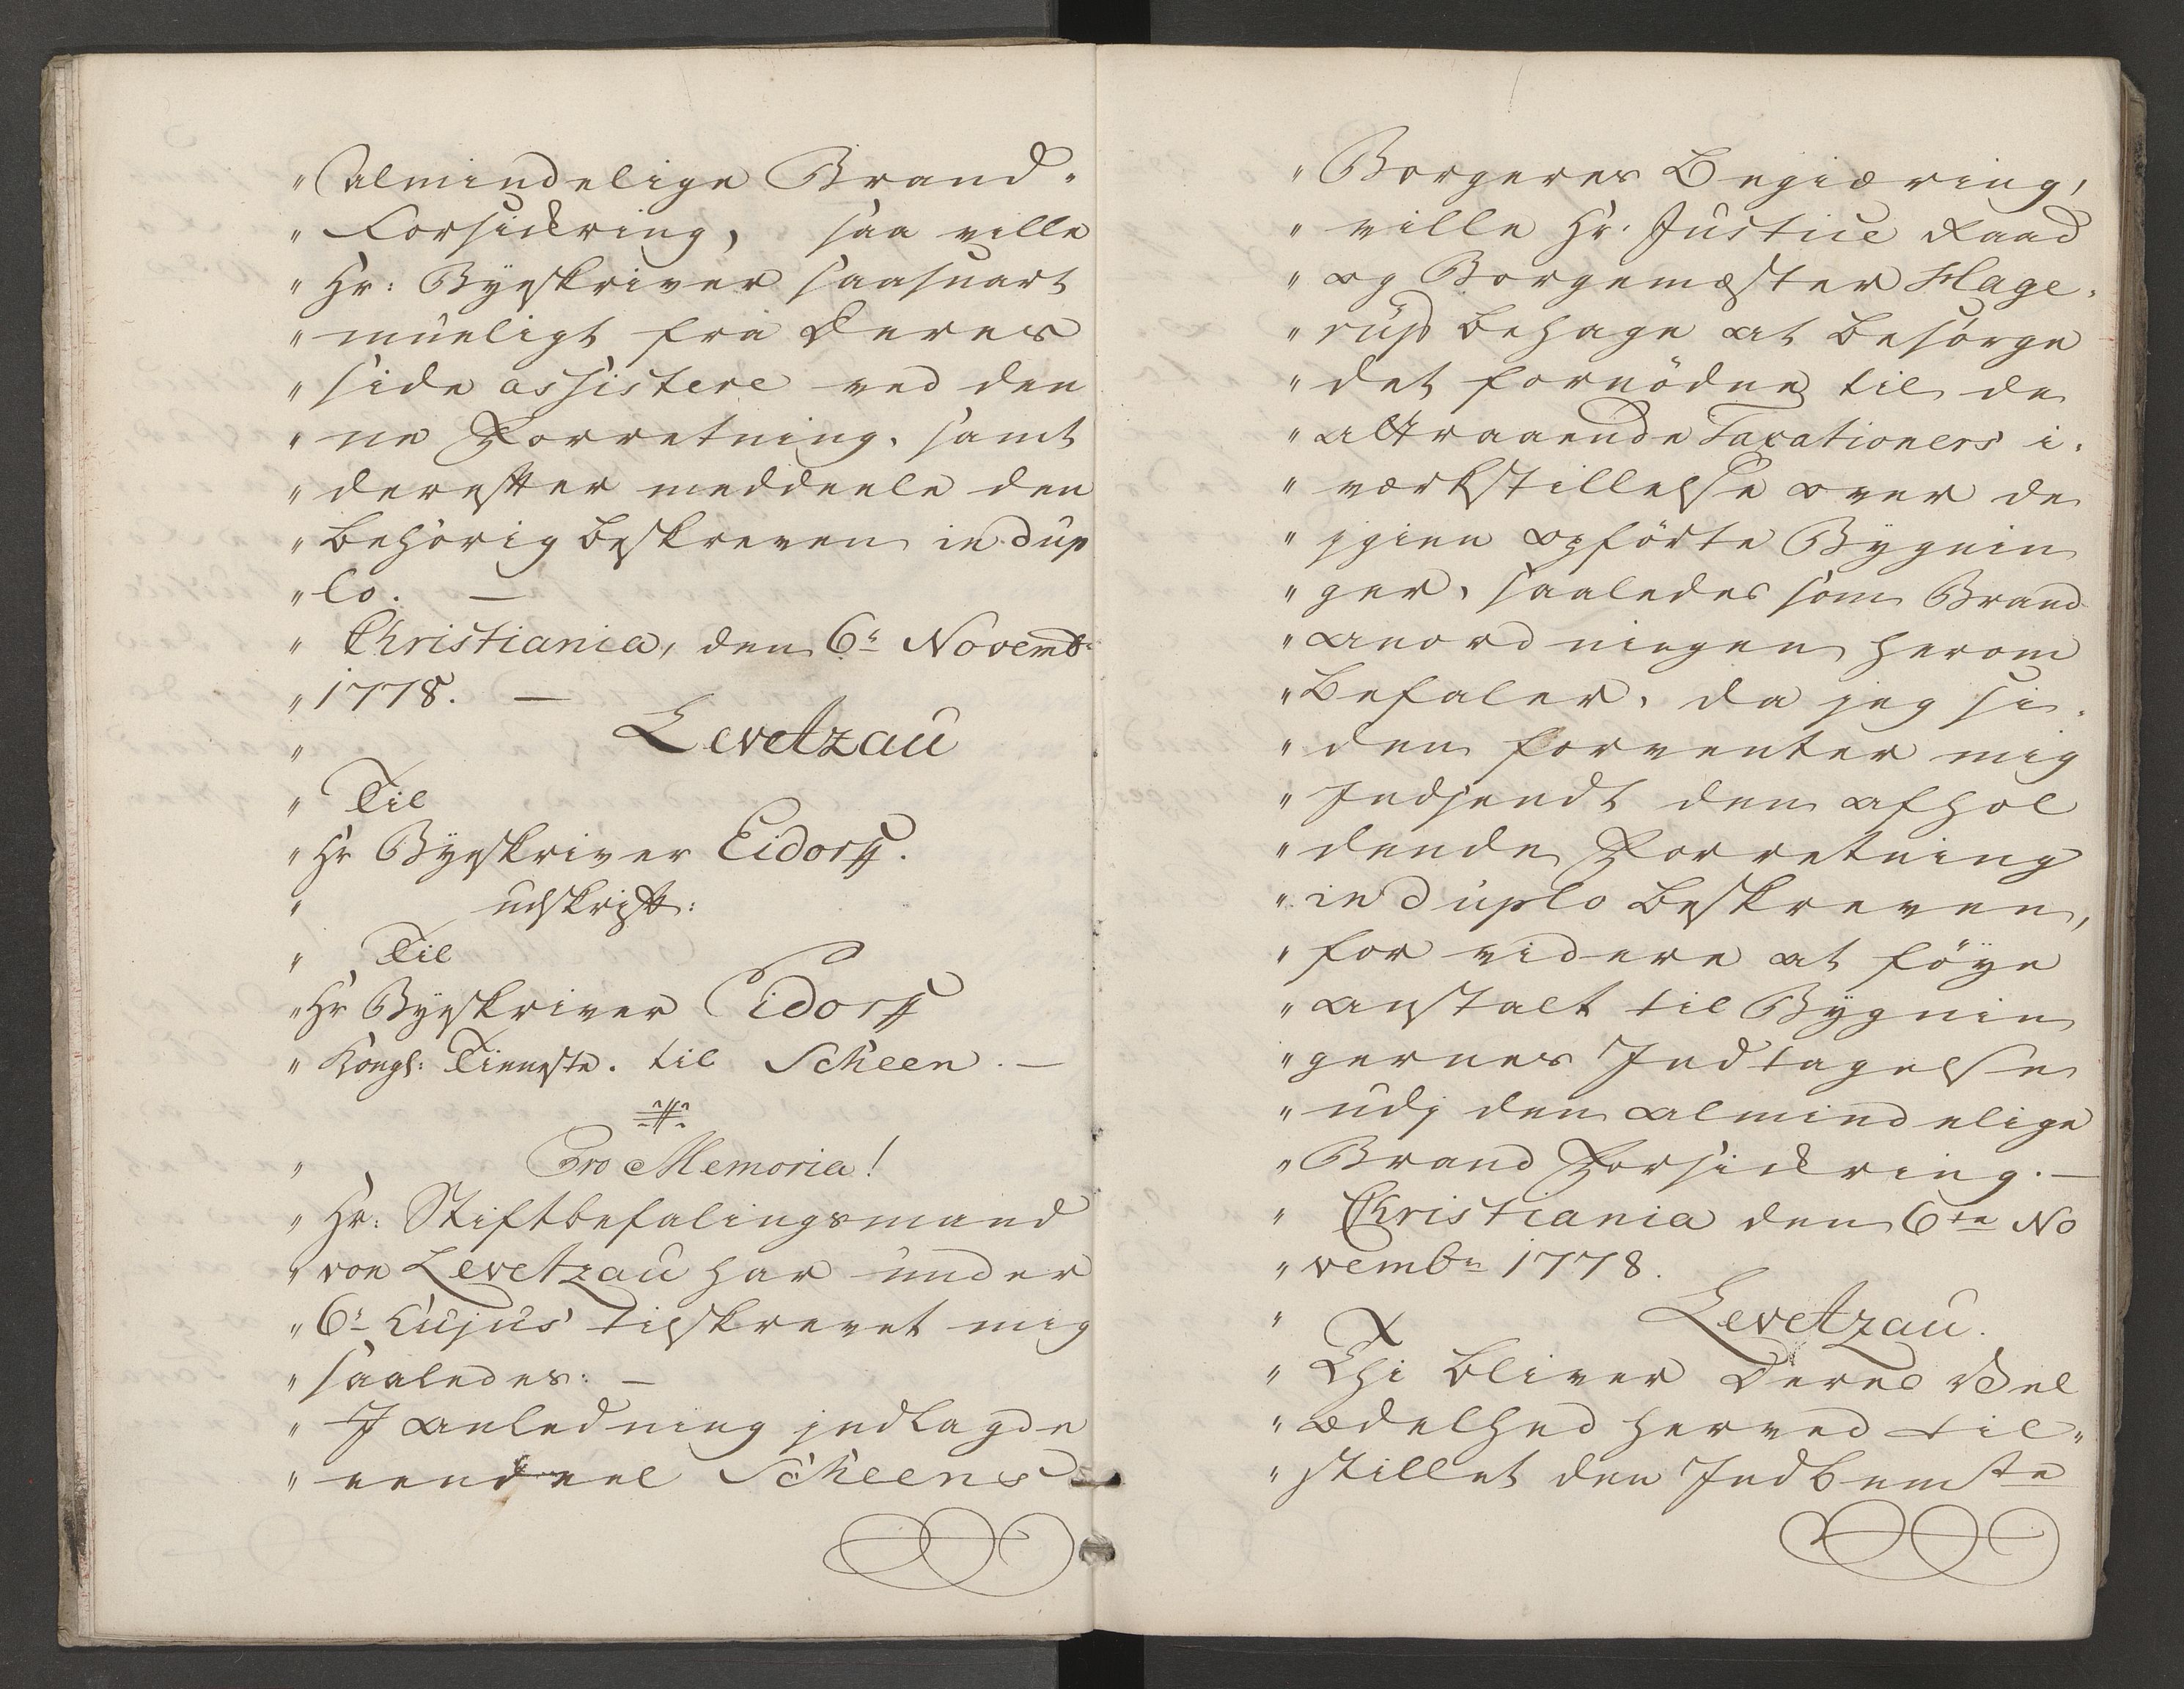 " Almindelige Brand"
" Forsickring, saa ville
" Hr: Byeskriver saasnart
" mueligt fra Deres
" side assistere ved den
" ne Forretning, samt
" derefter meddeele den
" behörig beskreven in dup
" lo. —
" Christiania, den 6te Novembr
" 1778. —
" Levetzau
" Til
" Hr Byeskriver Eidorff.
" udskrift:
" Til
" Hr Byeskriver Eidorff
" Kongl: Tieneste. til Scheen. —
" Pro Memoria!
" Hr: Stiftbefalingsmand
" von Levetzau har under
" 6te hujus tilskrevet mig
" saaledes: —
" I anledning indlagde
" eendeel Scheens
" Borgeres Begiæring,
" ville Hr. Justice Raad
" og Borgemester Hage"
" rup behage at besörge
" det fornödne til de
" attraaende Taxationers i"
" værkstillelse over de
" igien opförte Bygnin
" ger, saaledes som Brand
" anordningen herom
" befaler, da jeg si"
" den forventer mig
" Indsendt den afhol
" dende Forretning
" in duplo beskreven,
" for videre at föye
" anstalt til Bygnin
" gernes Indtagelse
" udj den almindelige
" Brand Forsickring. —
" Christiania den 6te No
" vembr 1778.
" Levetzau.
" Thi bliver Deres Vel
" ædelhed herved til"
" stillet den Indbemte